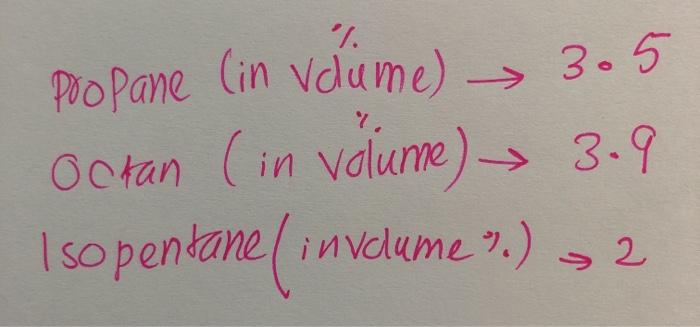 Propane (in volume) % → 3.5
Octan (in volume) % → 3.9
Isopentane (in volume %) → 2